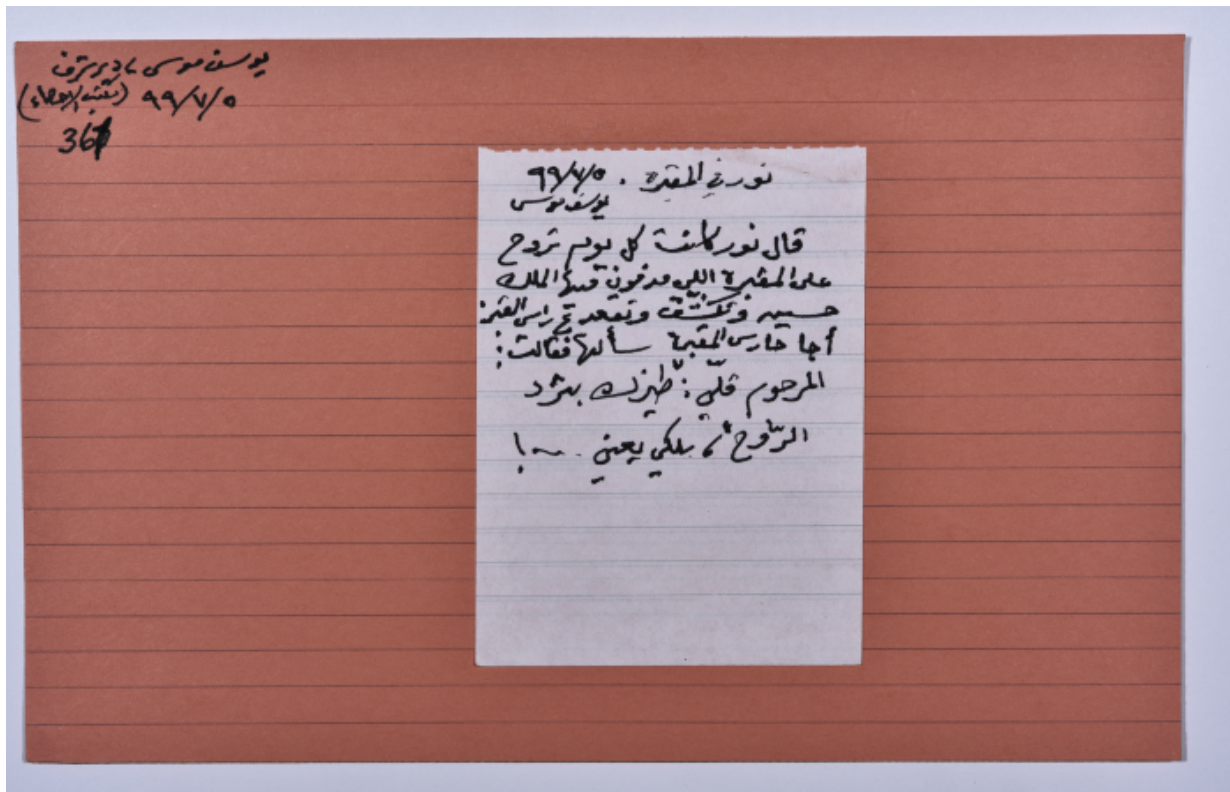 يوسف موسى / دير شرف
٩٩/٧/٥ (مكتب الإحصاء)
361
نور في المقبرة . ٩٩/٧/٥
يوسف موسى
قال نور كانت كل يوم تروح
على المقبرة اللي مدفون فيها الملك
حسين وتكشّف وتقعد ع راس القبر.
أجا حارس المقبرة سألها فقالت:
المرحوم قلّي: "طيزك بترد
الرّوح"، بلكي يعني ..!